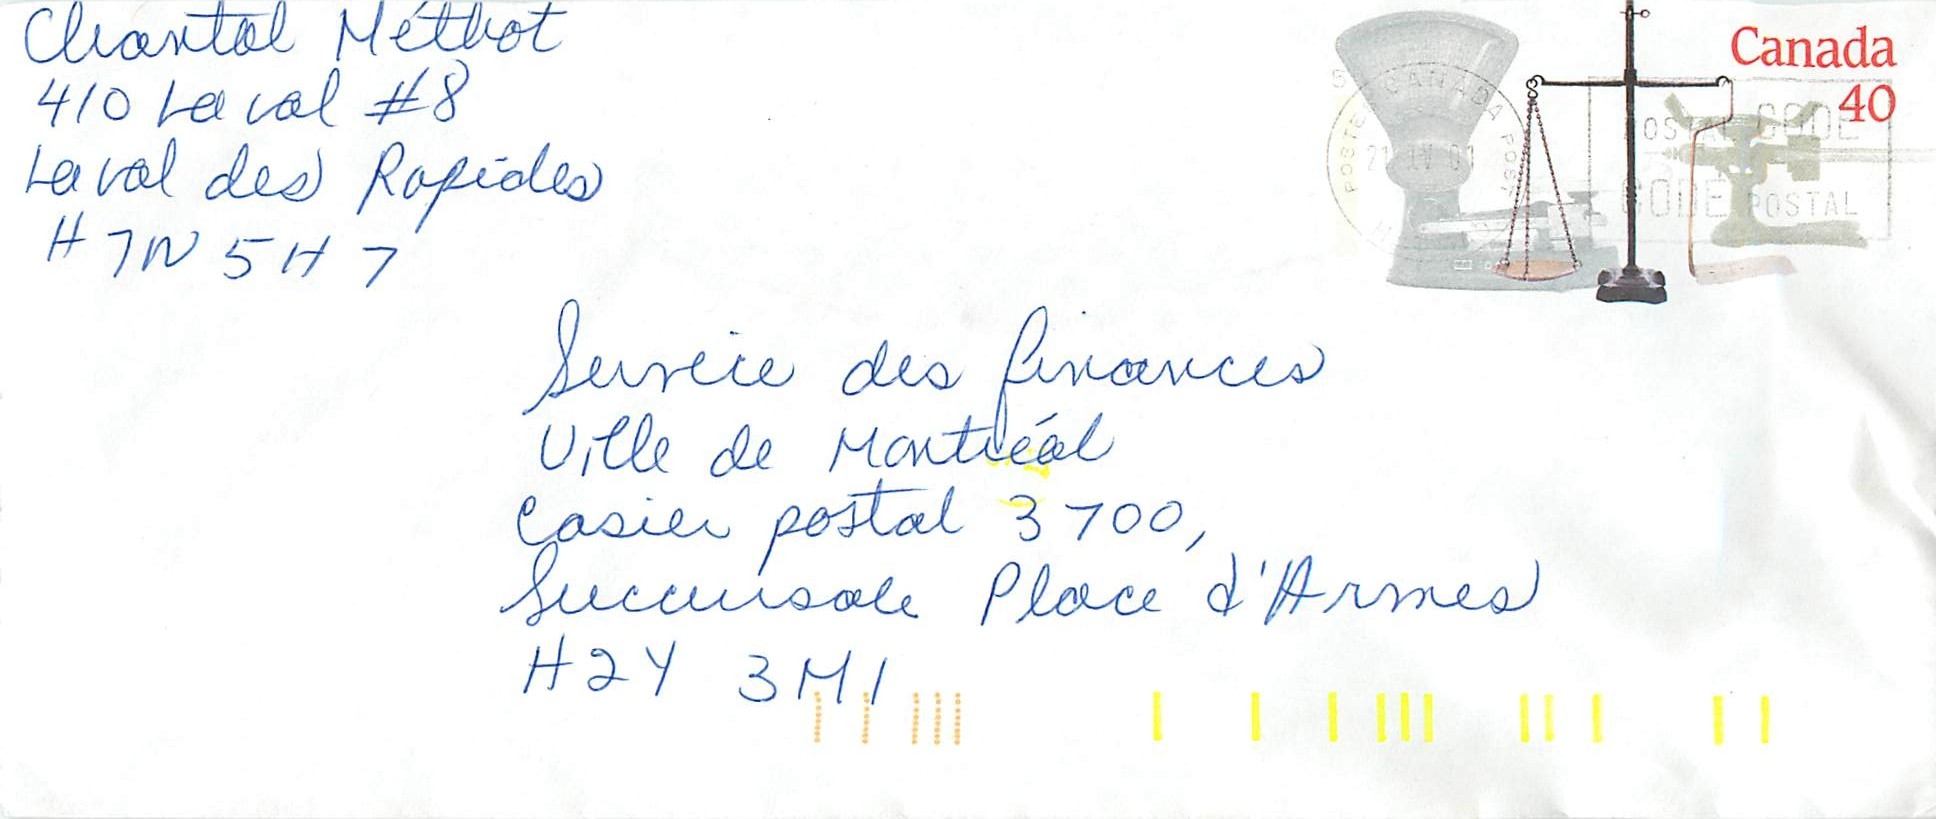 Chantal Méthot
410 Laval #8
Laval des Rapides
H7N 5H7
Canada
40
POSTAL CODE
CODE POSTAL
Service des finances
Ville de Montréal
Casier postal 3700,
Succursale Place d'Armes
H2Y 3M1